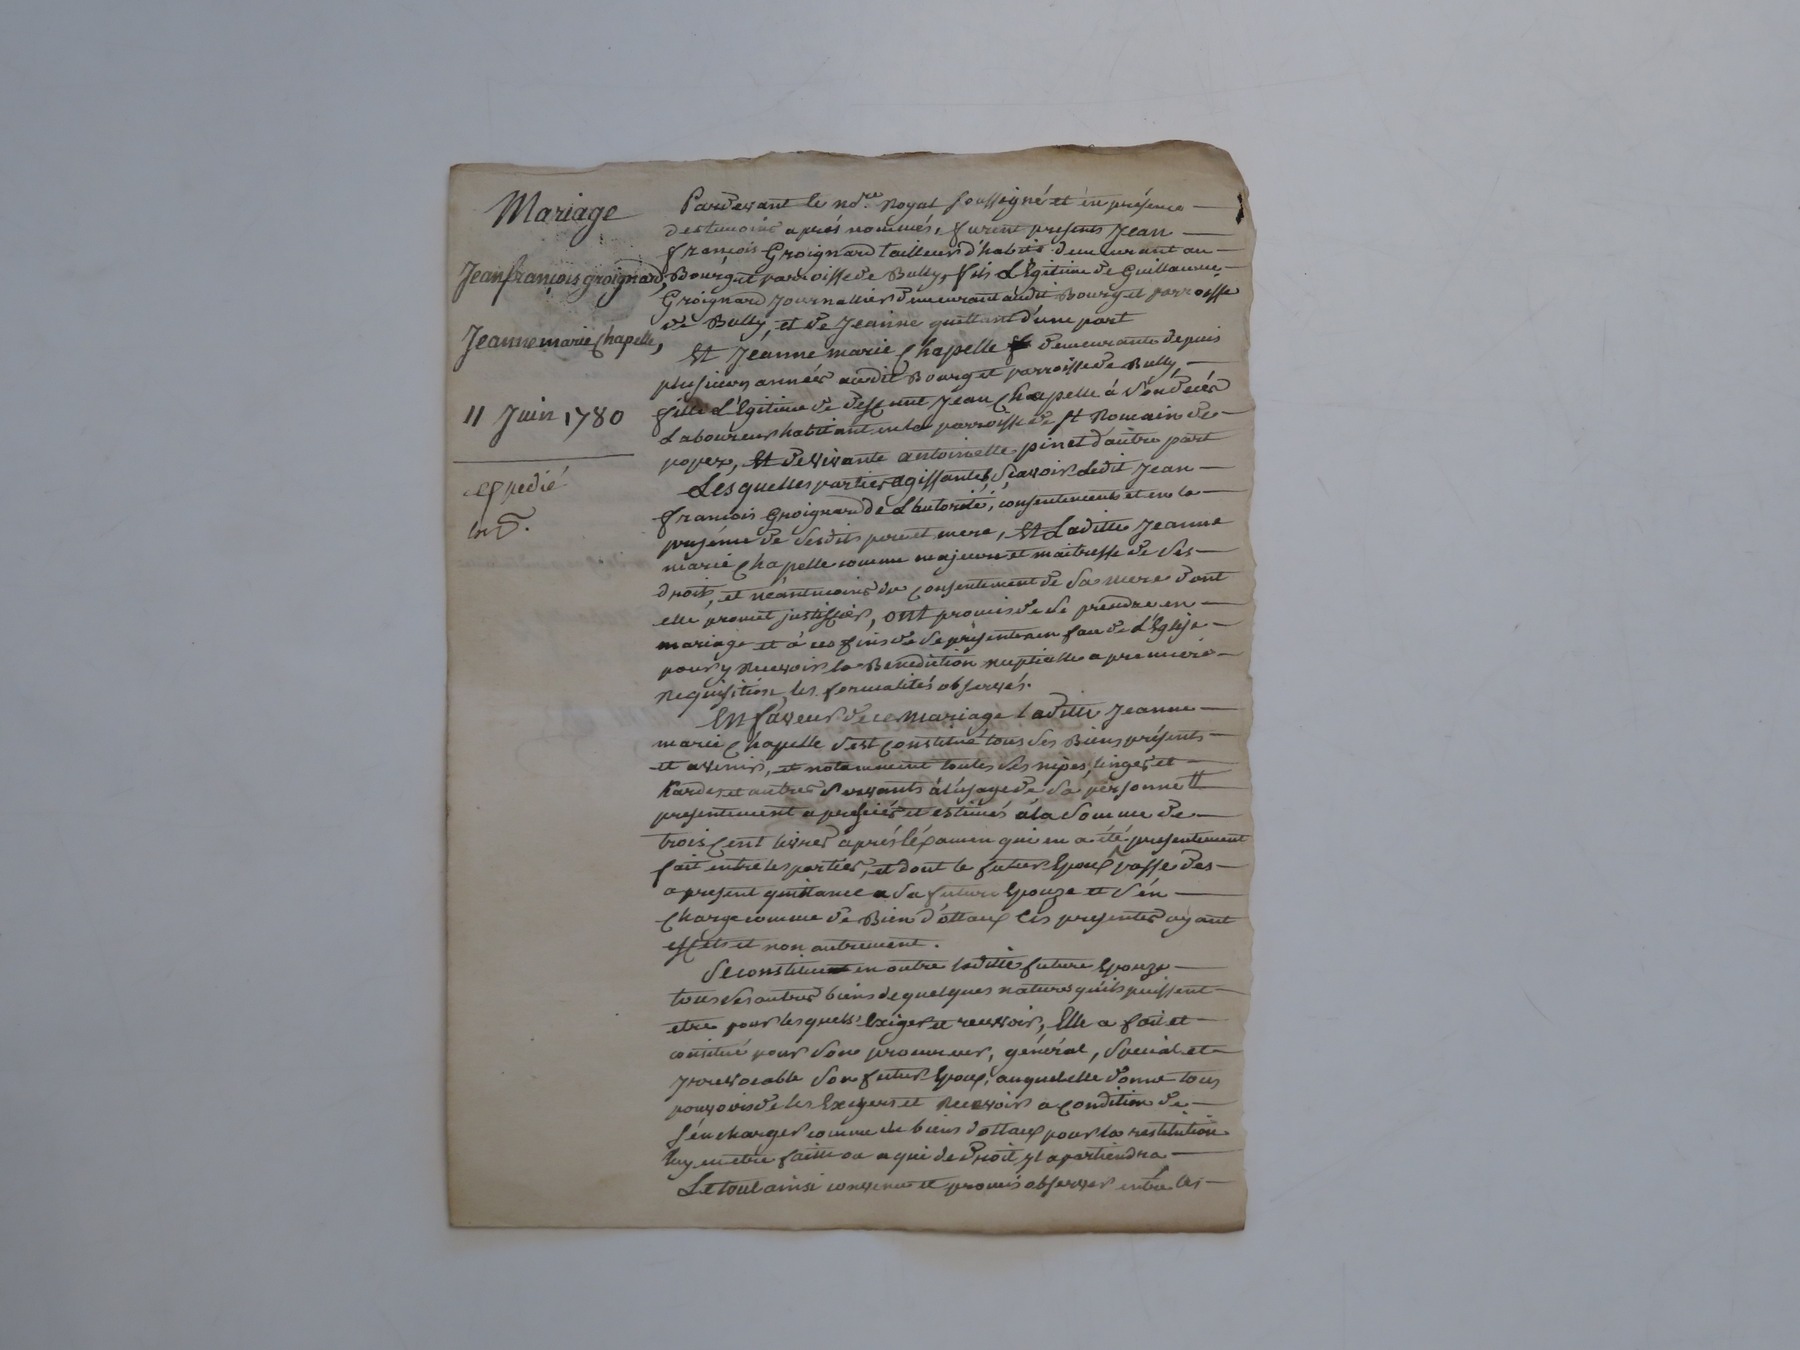 Mariage
Jean françois groignard,
Jeanne marie Chapelle,
11 Juin 1780
expedié
Pardevant le no.re Royal soussigné et en présence
des temoins aprés nommés, furent presents Jean
françois Groignard tailleur d'habits demeurant au
Bourg et parroisse de Bully, fils Légitime de Guillaume
Groignard Journallier demeurant audit Bourg et parroisse
de Bully, et de Jeanne quittant d'une part
Et Jeanne marie Chapelle demeurante depuis
plusieurs années audit Bourg et parroisse de Bully
fille Légitime de deffunt Jean Chapelle á son décés
Laboureur habitant en la parroisse de st Romain de
popex, Et de vivante antoinette pinet d'autre part
Lesquelles parties agissantes, sçavoir Ledit Jean
françois Groignard de L'hutorité, consentements et en la
présence de sesdits pere et mere, Et Laditte Jeanne
marie Chapelle comme majeure et maitresse de ses
droits, et néantmoins du consentement de sa mere dont
elle promet justiffier, ont promis de se prendre en
mariage et á ces fins de se présenter en face de L'Eglise
pour y Recevoir la Benediction nuptialle a premiere
Requisition les formalités observés.
En faveur de ce mariage laditte Jeanne
marie Chapelle s'est constitué tous ses Biens présents
et avenir, et notamment toutes ses nipes, linges et
hardes et autres servants á l'usage de sa personne
presentement apreciés et estimés á la somme de
trois Cent livres aprés l'examen qui en a été presentement
fait entre les parties, et dont le futur Epoux passe des
a present quittance a sa future Epouze et s'en
Charge comme de Bien d'ottaux les presentes ayant
effets et non autrement.
Se constitue en outre laditte future Epouze
tous ses autres biens de quelques natures qu'ils puissent
etre pour lesquels Exiger et recevoir, Elle a fait et
constitué pour son procureur, général, special et
yrrevocable son futur Epoux, auquel elle donne tous
pouvoirs de les Exigers et Recevoir a condition de
s'en charger comme de biens dottaux pour la restitution
luy en etre faitte ou a qui de Droit yl apartiendra
Le tout ainsi convenu et promis observer entre les